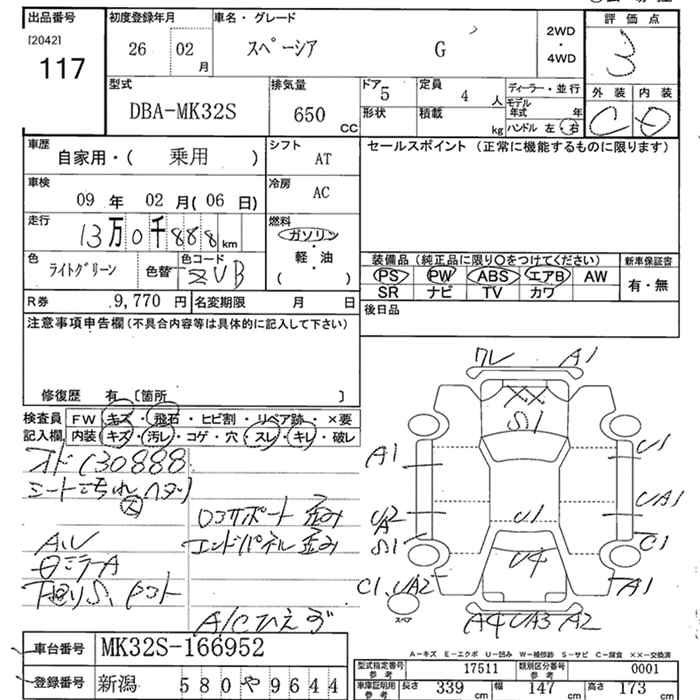 出品番号
[2042]
117
初度登録年月
26 02 月
車名・グレード
スペーシア G
2WD
・
4WD
評価点
3
外装 内装
C D
型式
DBA-MK32S
排気量
650 CC
ドア 5
定員 4 人
形状
積載 kg
ディーラー・並行
モデル年式 年
ハンドル 左・右
車歴
自家用・( 乗用 )
シフト AT
車検
09 年 02 月( 06 日)
冷房 AC
走行
13万0千888 km
燃料
ガソリン
軽・油
( )
色
ライトグリーン
色替
色コード
ZUB
R券 9,770 円
名変期限 月 日
セールスポイント (正常に機能するものに限ります)
装備品 (純正品に限り○をつけてください)
PS PW ABS エアB AW
SR ナビ TV カワ
新車保証書
有・無
後日品
注意事項申告欄(不具合内容等は具体的に記入して下さい)
修復歴 有 〔箇所 〕
検査員
記入欄
FW キズ・飛石・ヒビ割・リペア跡・×要
内装 キズ・汚レ・コゲ・穴・スレ・キレ・破レ
オド130888
シートこちれ ヘタリ
大
ロアサポート 歪み
エンドパネル 歪み
AU
下回りS
A/Cひえず
ワレ A1
XX
S1
A1
U1
U2
A
S1
U1
UA1
C1
U4
C1, UA2
A1
スペア
A4 UA3 A2
A-キズ E-エクボ U-凹み W-補修跡 S-サビ C-腐食 XX-交換済
車台番号 MK32S-166952
登録番号 新潟 580 や 9644
型式指定番号
参考
17511
類別区分番号
参考
0001
車庫証明用
参考
長さ 339 cm
幅 147 cm
高さ 173 cm